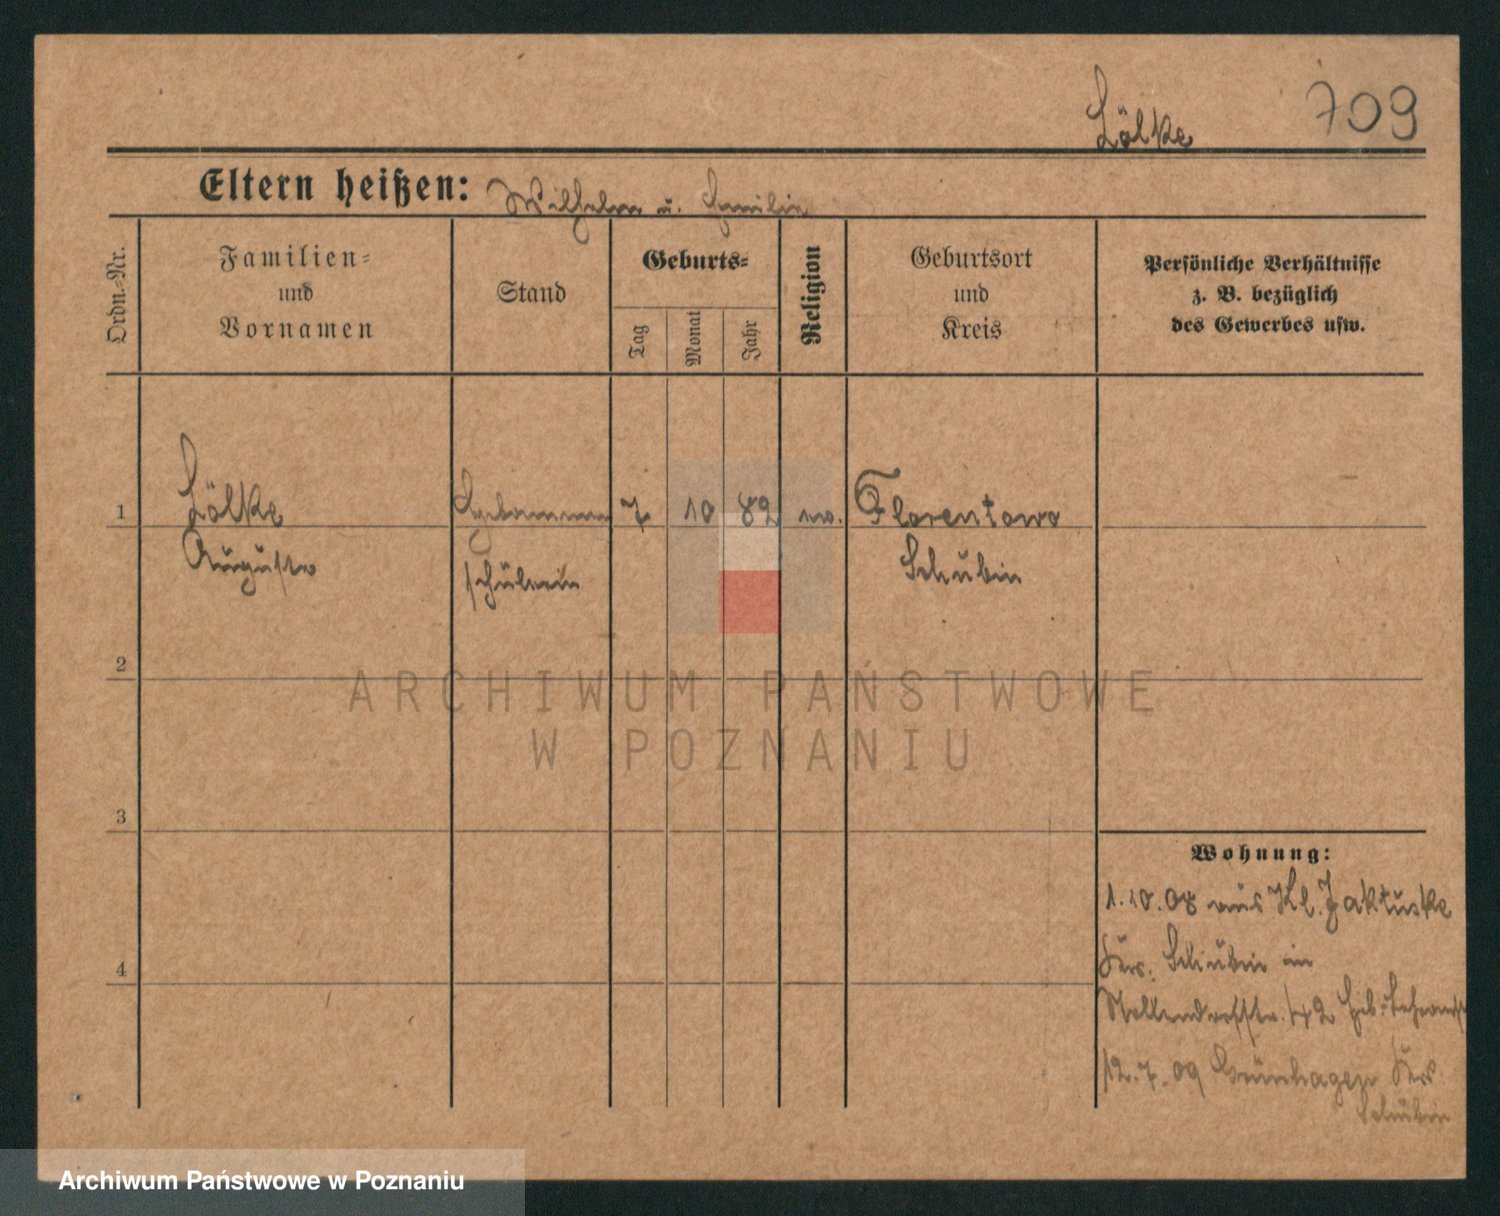 Lölke 709
Eltern heißen: Wilhelm u. Emilie
Ordn.-Nr.
Familien-
und
Vornamen
Stand
Geburts-
Tag
Monat
Jahr
Religion
Geburtsort
und
Kreis
Persönliche Verhältnisse
z. B. bezüglich
des Gewerbes usw.
1 Lölke Hebammen 7 10 82 ev. Florentowo
Auguste schülerin Schubin
2
3
4
Wohnung:
1.10.08 aus Kl. Jaktuske
Krs. Schubin in
Nollendorfstr. 42 Heb. Lehranst
12.7.09 Grünhagen Krs
Schubin
ARCHIWUM PAŃSTWOWE
W POZNANIU
Archiwum Państwowe w Poznaniu